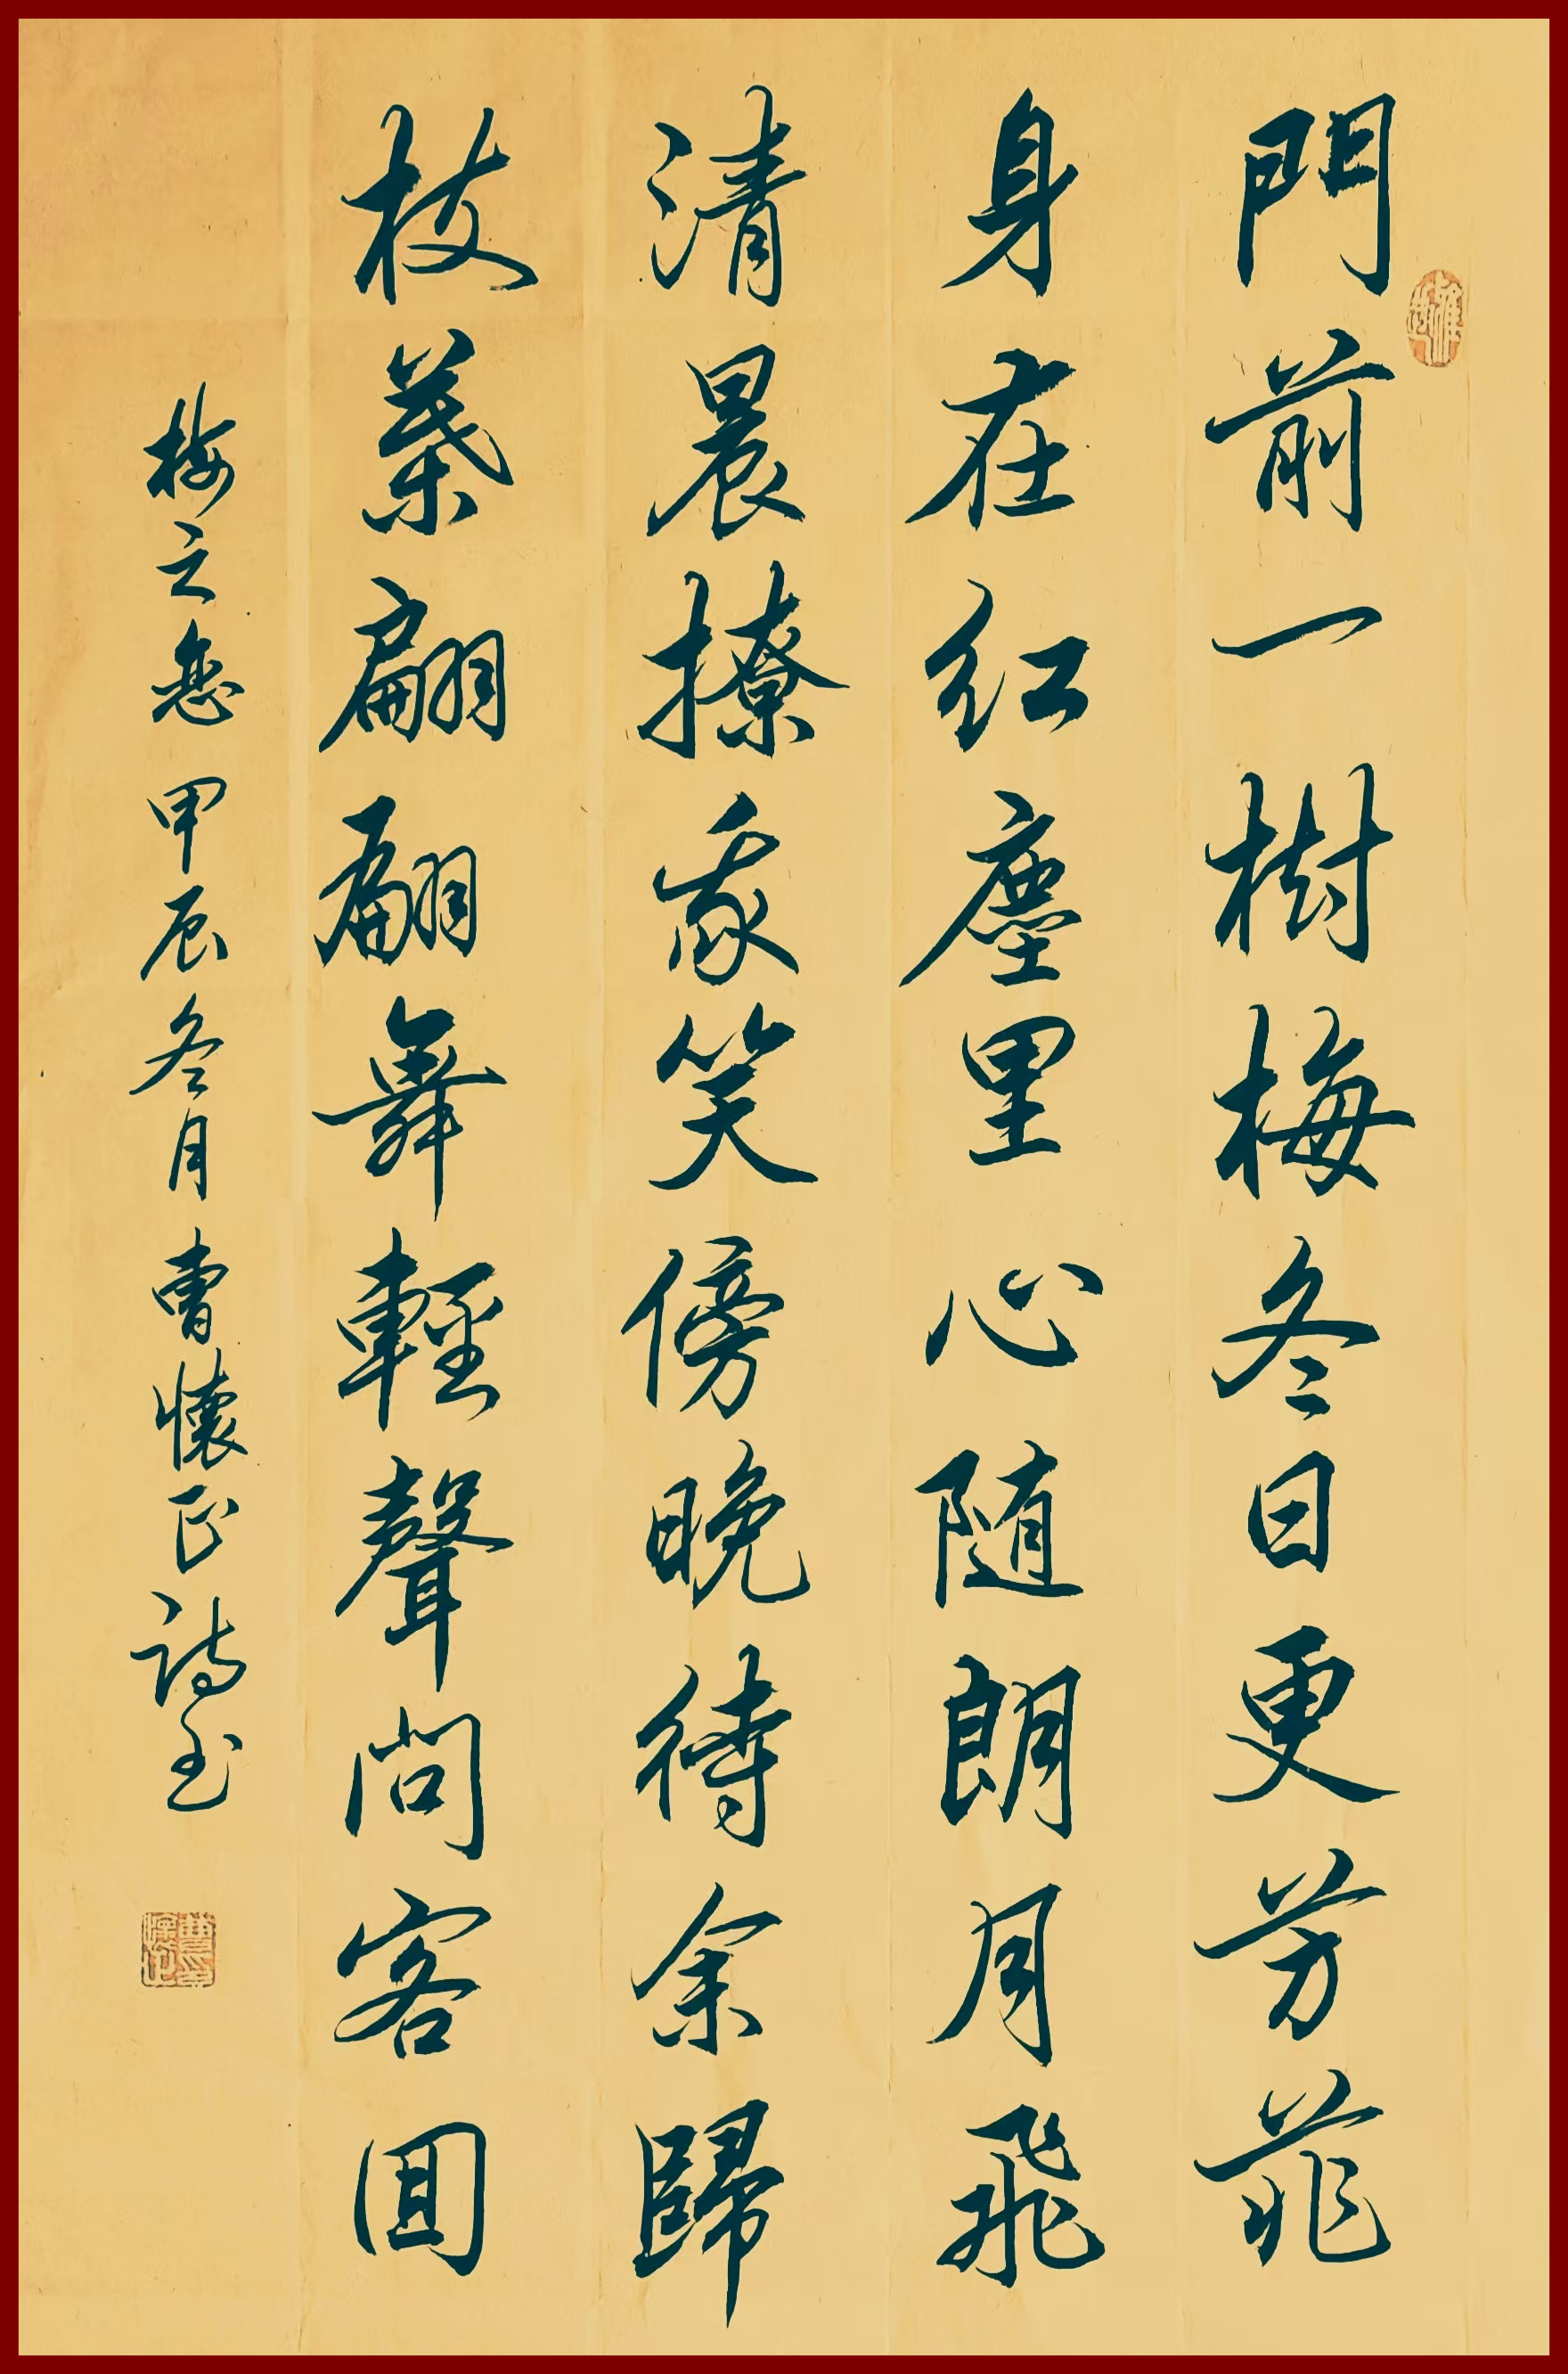 門前一樹梅冬日更芳菲
身在红塵里心随朗月飛
清晨撩我笑傍晚待余歸
枝葉翩翩舞輕聲問客回
梅之恋甲辰冬月曹懷正詩书